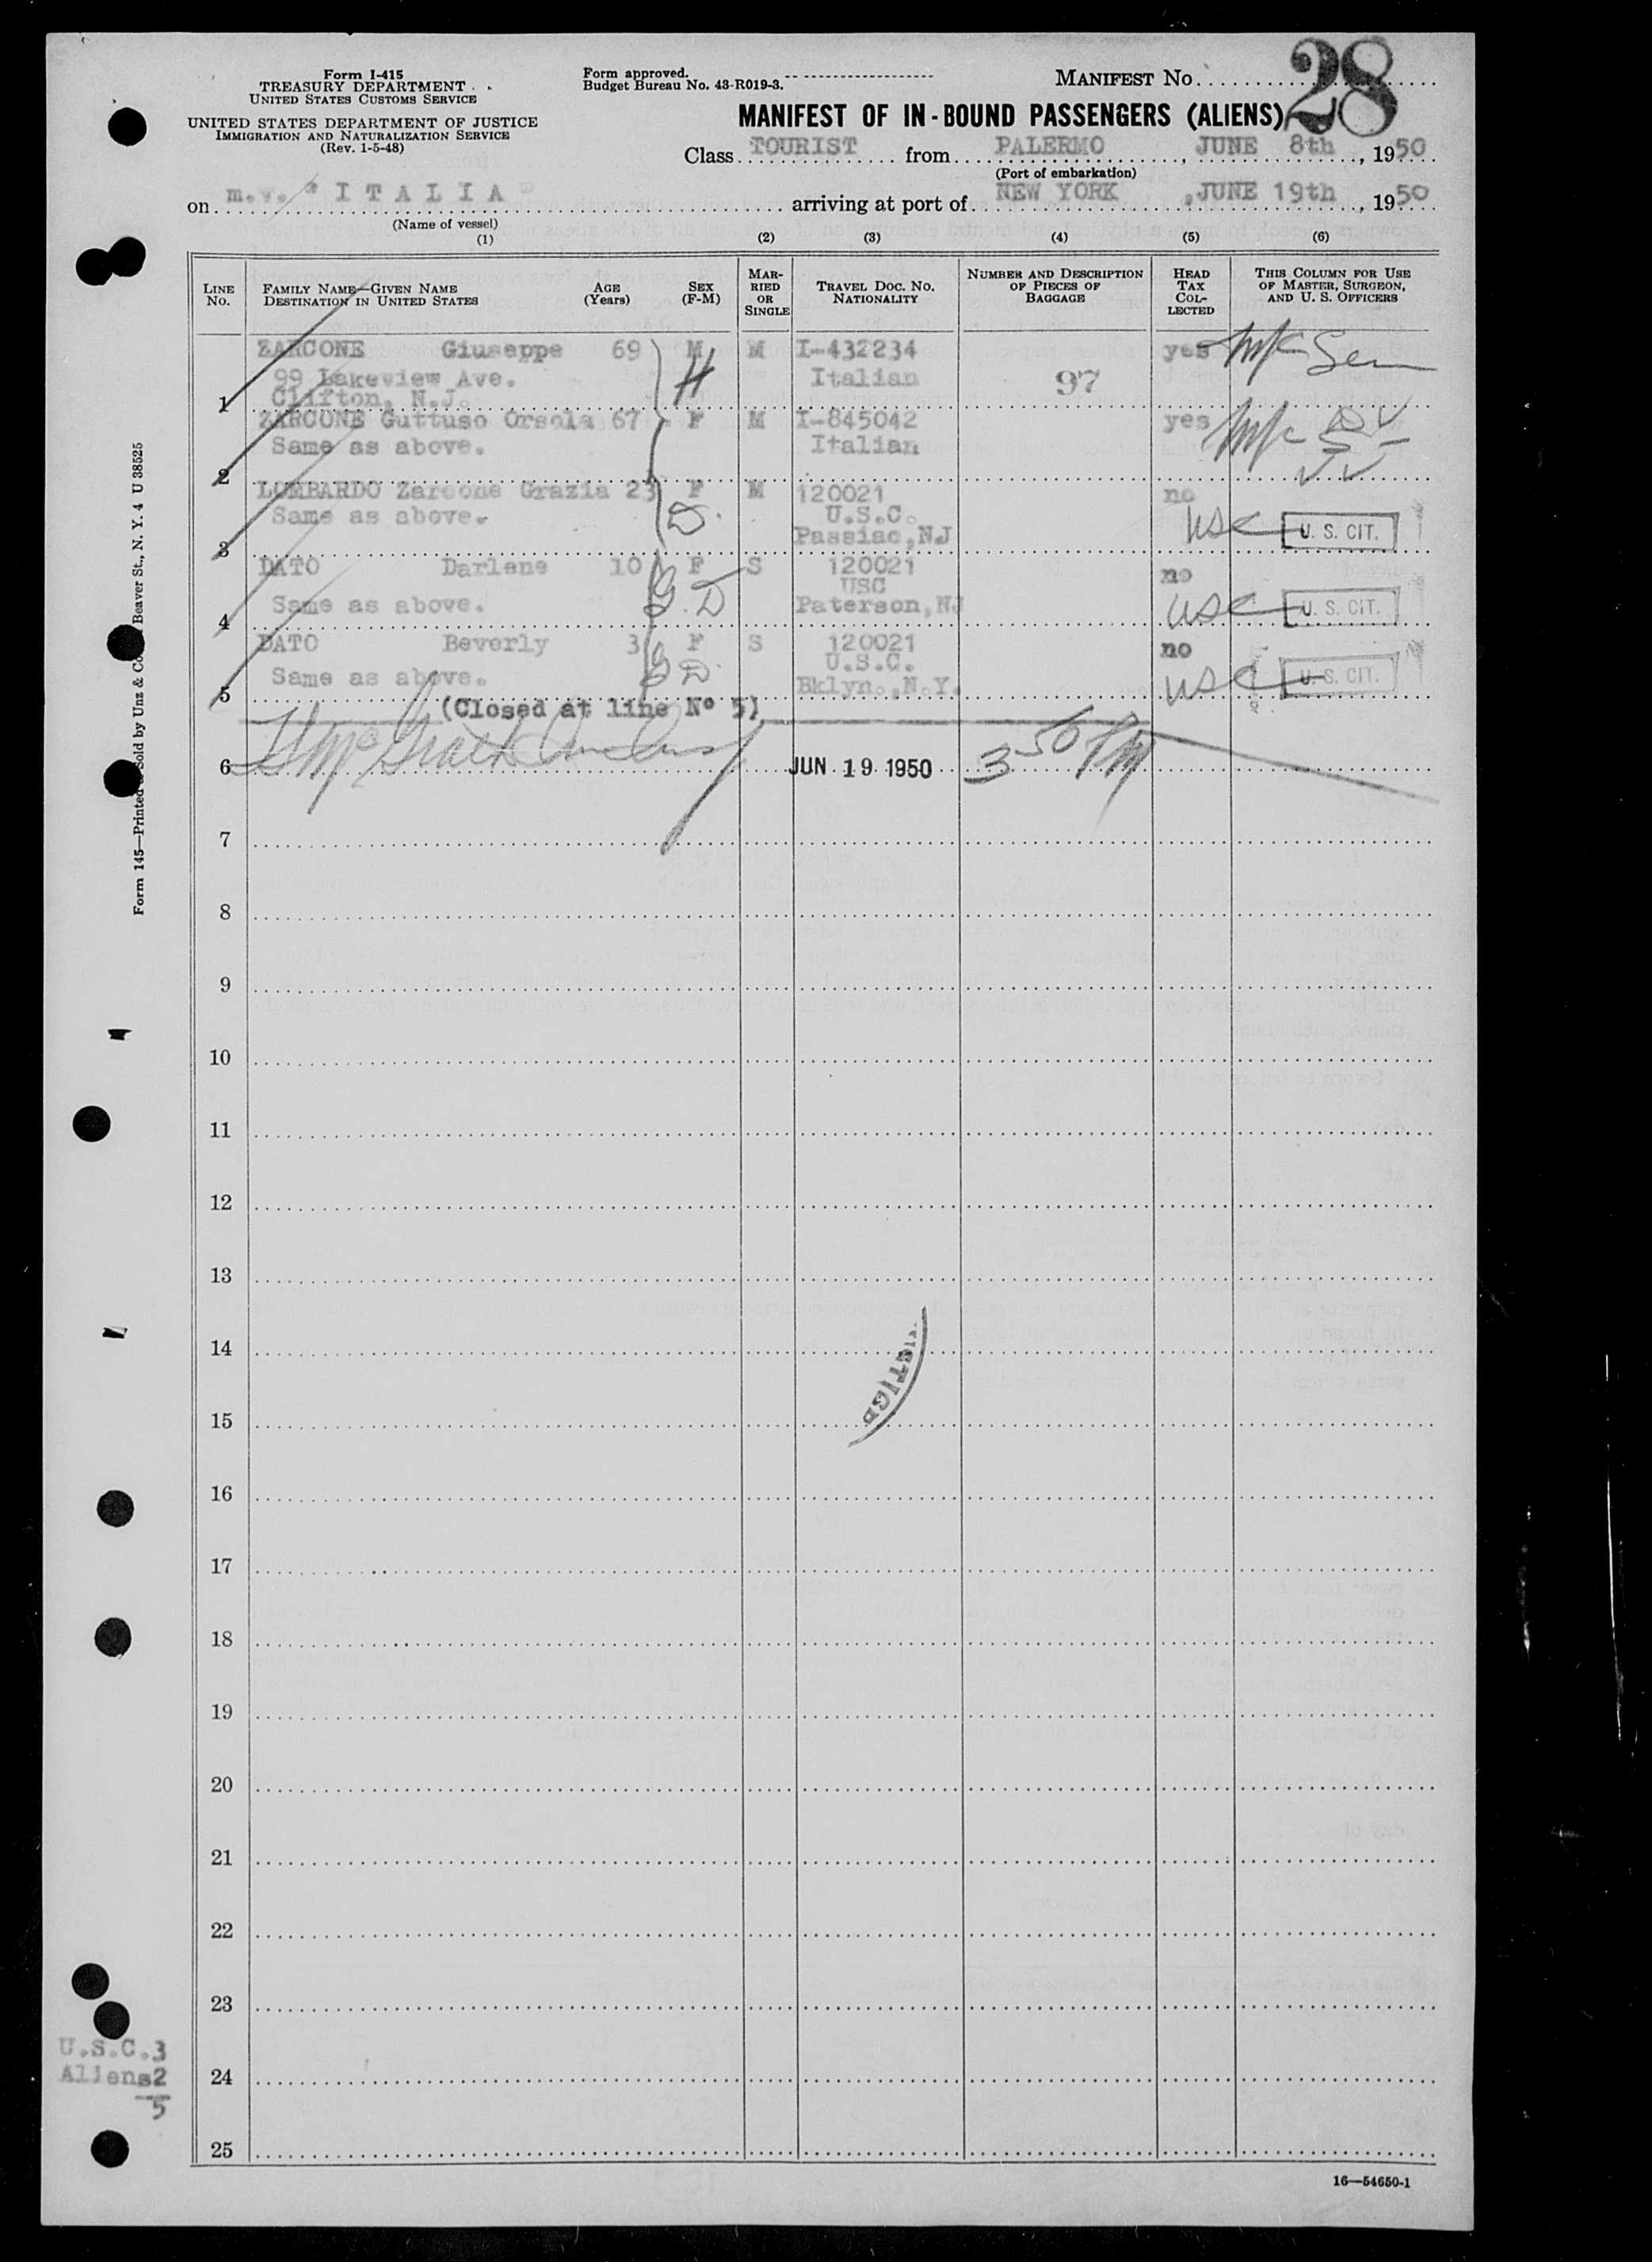 28
Form I-415
TREASURY DEPARTMENT
UNITED STATES CUSTOMS SERVICE
UNITED STATES DEPARTMENT OF JUSTICE
IMMIGRATION AND NATURALIZATION SERVICE
(Rev. 1-5-48)
Form approved.
Budget Bureau No. 43-R019-3.
MANIFEST No.
MANIFEST OF IN-BOUND PASSENGERS (ALIENS)
Class TOURIST from PALERMO, JUNE 8th, 1950
(Port of embarkation)
on m.v. "ITALIA" arriving at port of NEW YORK, JUNE 19th, 1950
(Name of vessel)
(1) (2) (3) (4) (5) (6)
LINE No. FAMILY NAME—GIVEN NAME DESTINATION IN UNITED STATES AGE (Years) SEX (F-M) MARRIED OR SINGLE TRAVEL DOC. NO. NATIONALITY NUMBER AND DESCRIPTION OF PIECES OF BAGGAGE HEAD TAX COLLECTED THIS COLUMN FOR USE OF MASTER, SURGEON, AND U. S. OFFICERS
ZARCONE Giuseppe 69 M M I-432234 yes
99 Lakeview Ave. H Italian 97
1 Clifton, N.J.
ZARCONE Guttuso Orsola 67 F M I-845042 yes
Same as above. Italian
2
LOMBARDO Zarcone Grazia 23 F M 120021 no
Same as above. D. U.S.C. usc U. S. CIT.
3 Passiac,NJ
DATO Darlene 10 F S 120021 no
USC
Same as above. G.D Paterson,NJ usc U. S. CIT.
4
DATO Beverly 3 F S 120021 no
U.S.C.
Same as above. G D Bklyn.,N.Y. usc U. S. CIT.
5
(Closed at line Nº 5)
6 JUN 19 1950 3 50 PM
7
8
9
10
11
12
13
14
15
16
17
18
19
20
21
22
23
24
25
U.S.C.3
Aliens2
5
16—54650-1